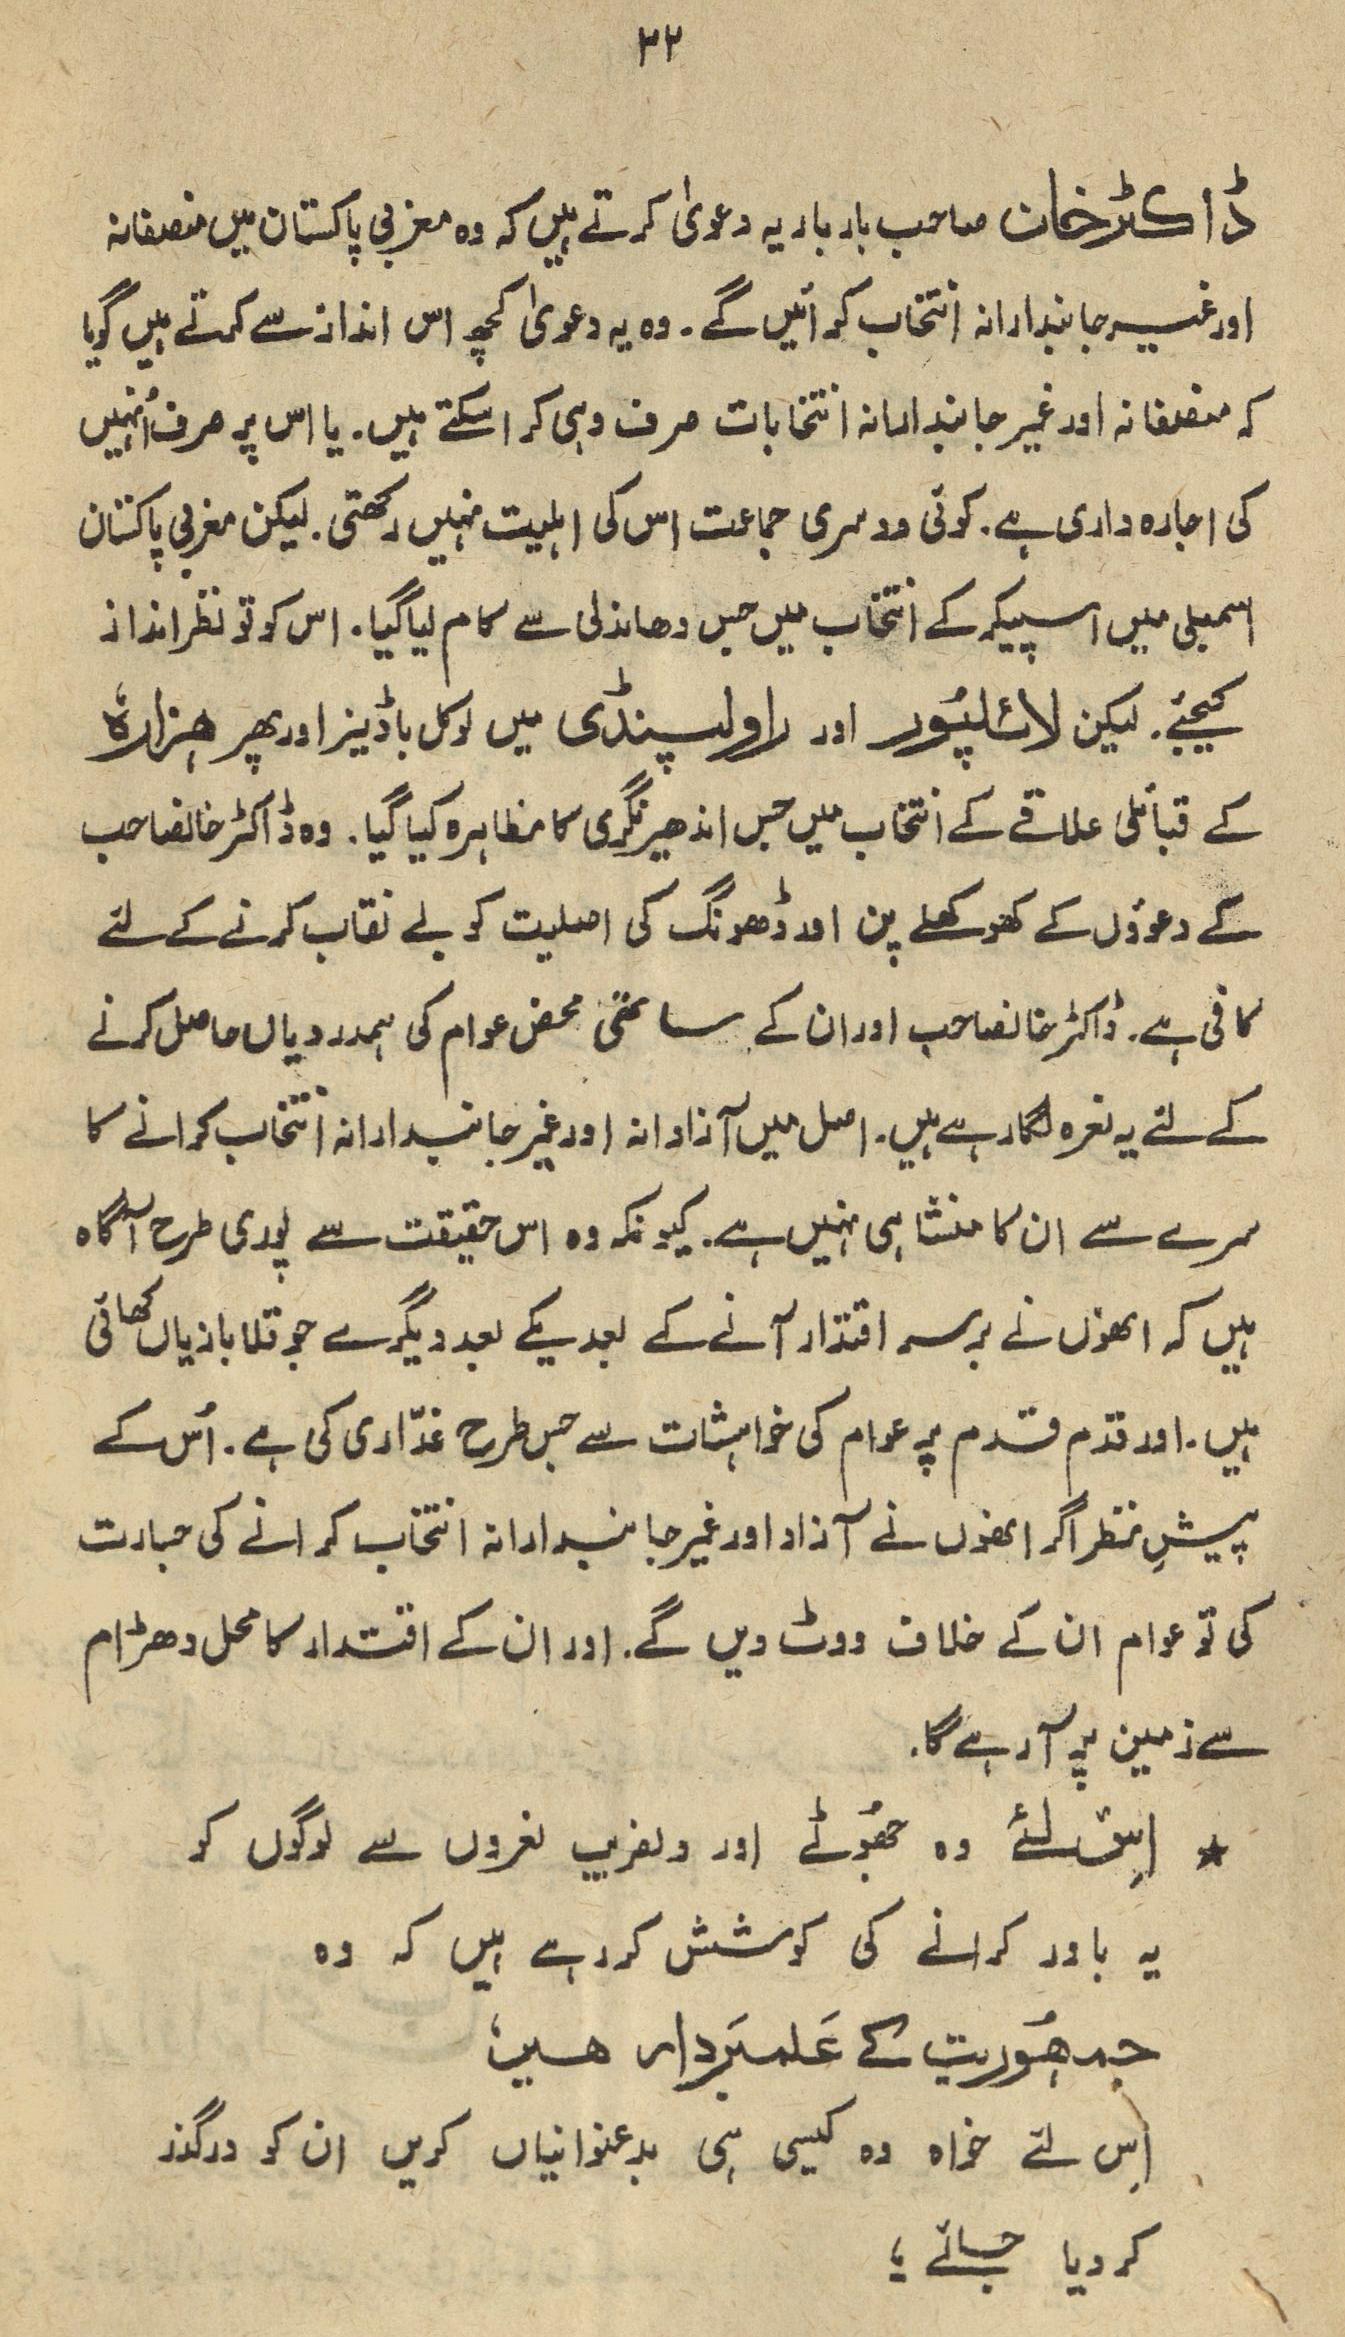 ۳۲
ڈاکٹر خان صاحب بار بار یہ دعویٰ کرتے ہیں کہ وہ مغربی پاکستان میں منصفانہ
اور غیر جانبدارانہ انتخاب کرائیں گے۔ وہ یہ دعویٰ کچھ اس انداز سے کرتے ہیں گویا
کہ منصفانہ اور غیر جانبدارانہ انتخابات صرف وہی کرا سکتے ہیں۔ یا اس پر صرف اُنہیں
کی اجارہ داری ہے۔ کوئی دوسری جماعت اس کی اہلیت نہیں رکھتی۔ لیکن مغربی پاکستان
اسمبلی میں اسپیکر کے انتخاب میں جس دھاندلی سے کام لیا گیا۔ اس کو تو نظر انداز
کیجئے۔ لیکن لائلپُور اور راولپنڈی میں لوکل باڈیز اور پھر ہزارہ
کے قبائلی علاقے کے انتخاب میں جس اندھیر نگری کا مظاہرہ کیا گیا۔ وہ ڈاکٹر خانصاحب
کے دعوؤں کے کھوکھلے پن اور ڈھونگ کی اصلیت کو بے نقاب کرنے کے لئے
کافی ہے۔ ڈاکٹر خانصاحب اور ان کے ساتھی محض عوام کی ہمدردیاں حاصل کرنے
کے لئے یہ نعرہ لگا رہے ہیں۔ اصل میں آزادانہ اور غیر جانبدارانہ انتخاب کرانے کا
سرے سے ان کا منشا ہی نہیں ہے۔ کیونکہ وہ اس حقیقت سے پوری طرح آگاہ
ہیں کہ انھوں نے برسر اقتدار آنے کے بعد یکے بعد دیگرے جو قلابازیاں کھائی
ہیں۔ اور قدم قدم پر عوام کی خواہشات سے جس طرح غدّاری کی ہے۔ اُس کے
پیشِ نظر اگر انھوں نے آزاد اور غیر جانبدارانہ انتخاب کرانے کی جسارت
کی تو عوام ان کے خلاف ووٹ دیں گے۔ اور ان کے اقتدار کا محل دھڑام
سے زمین پر آ رہے گا۔
★ اِس لئے وہ جھُوٹے اور دلفریب نعروں سے لوگوں کو
یہ باور کرانے کی کوشش کر رہے ہیں کہ وہ
جمہُوریت کے عَلمبَردار ہیں،
اِس لئے خواہ وہ کیسی ہی بدعنوانیاں کریں ان کو درگذر
کر دیا جائے ؛